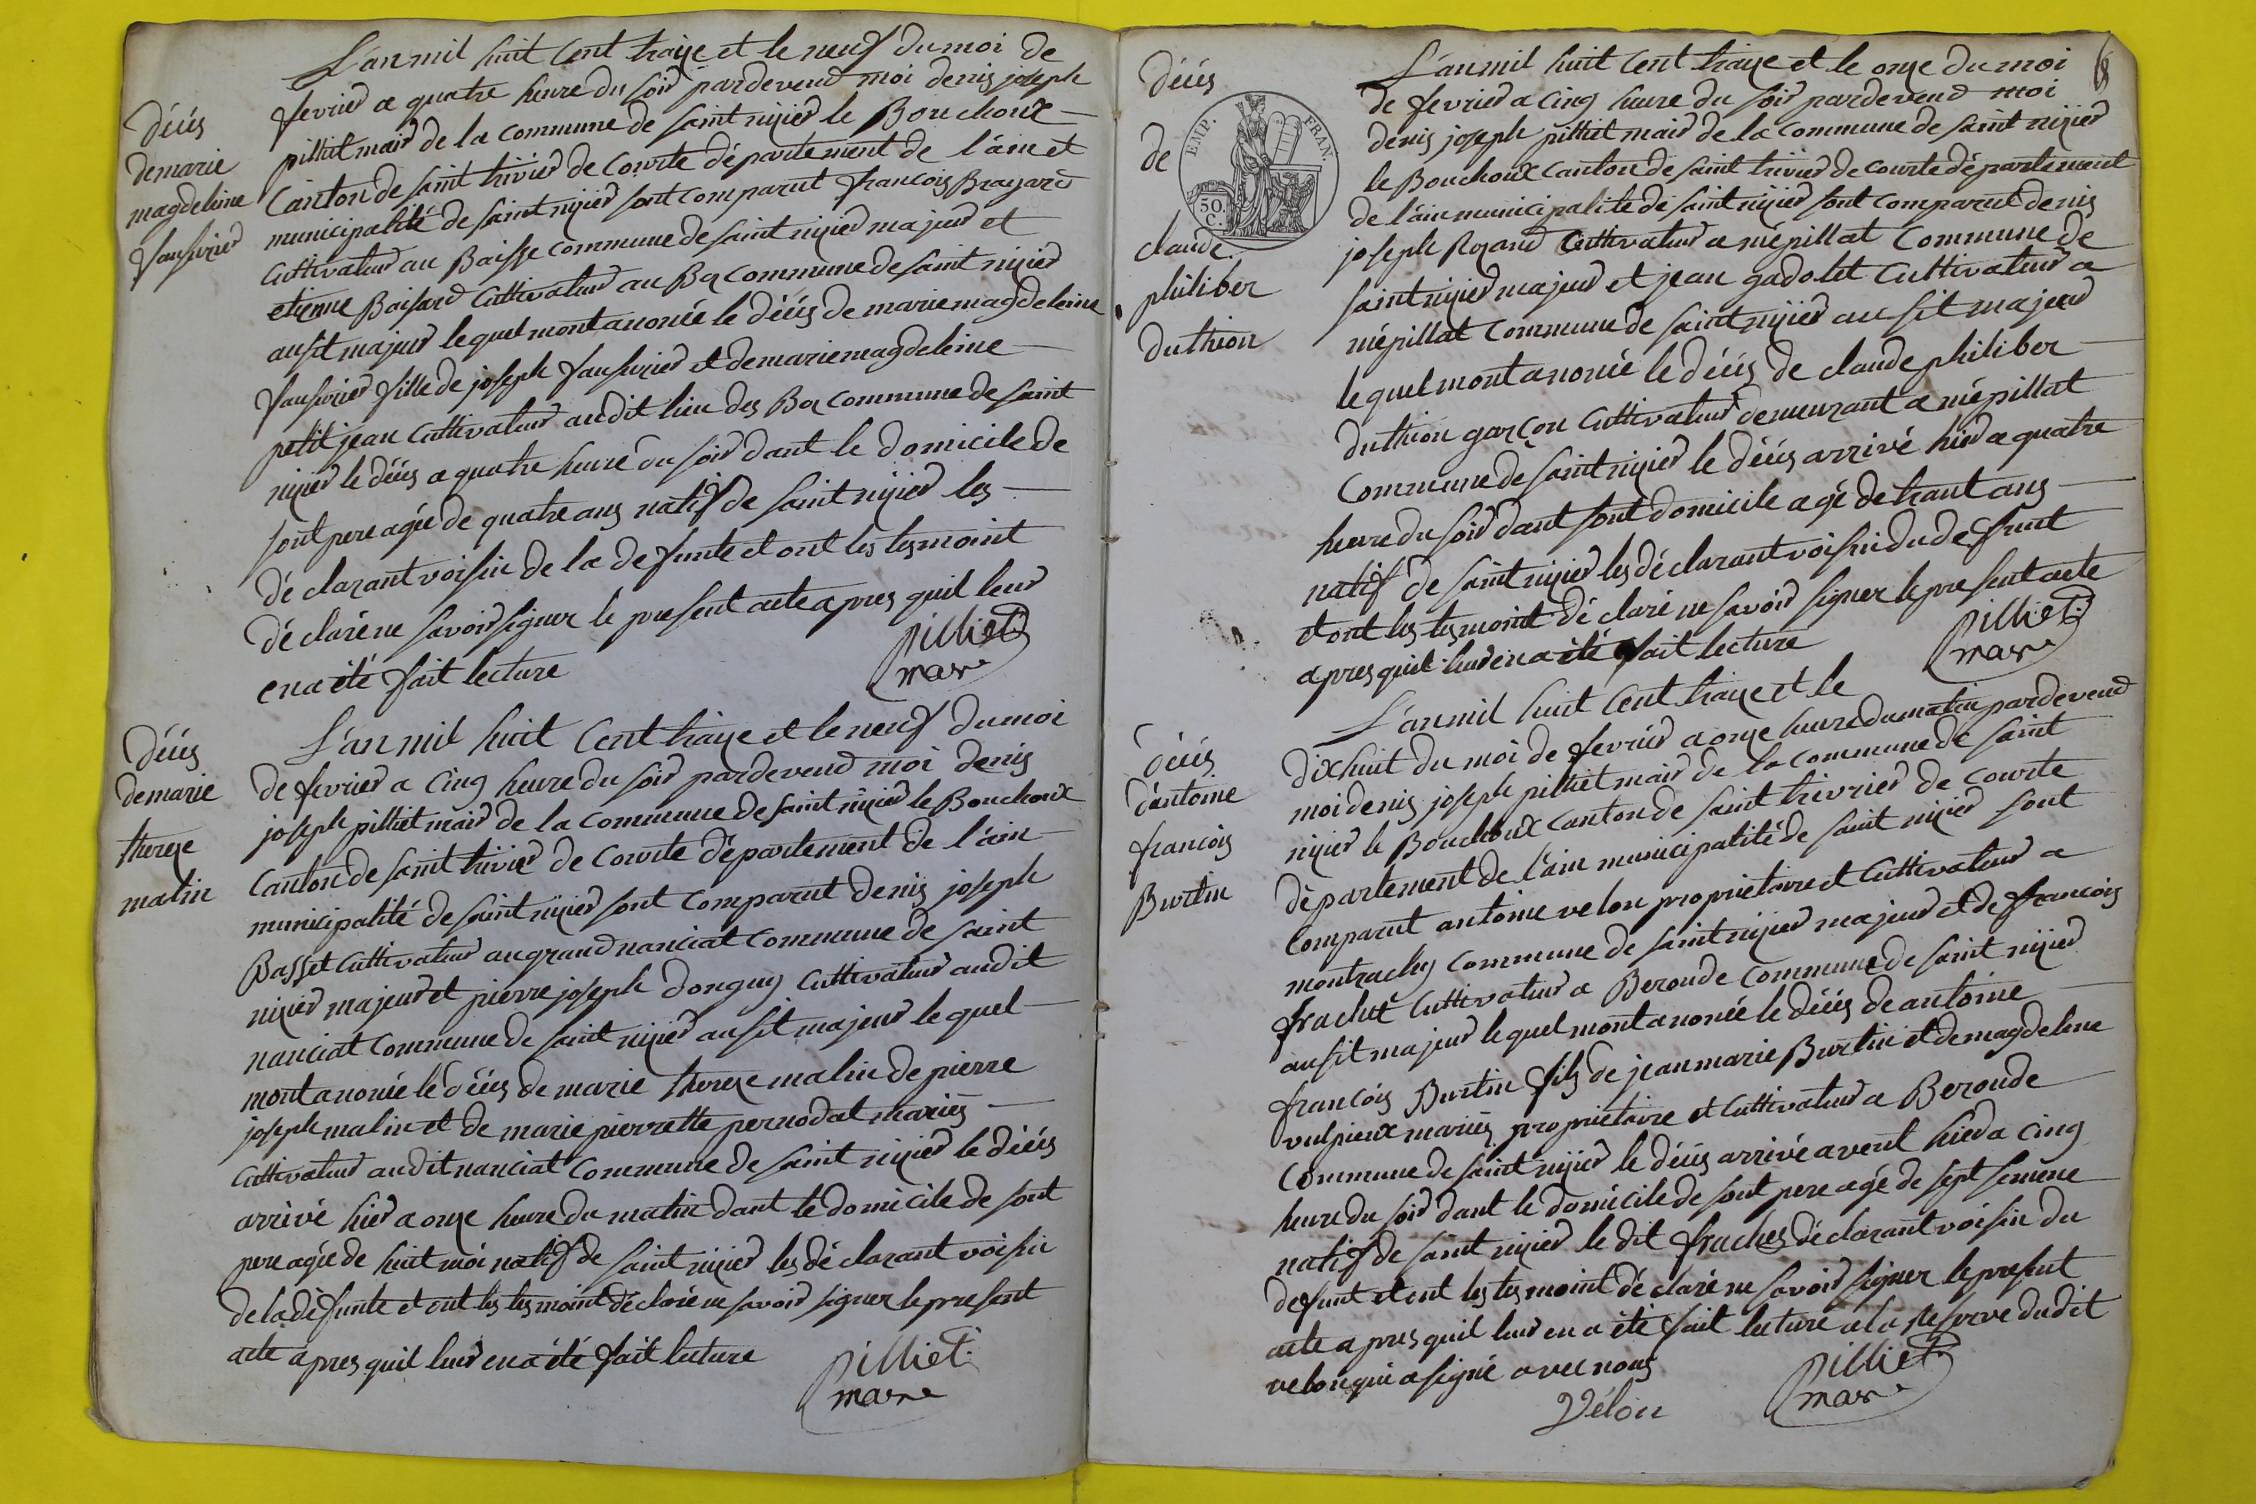 L'an mil huit Cent traize et le neuf du moi de
fevrier a quatre heure du soir pardevend moi denis joseph
pilliet mair de la commune de saint nizier le Bouchoux
Canton de saint trivier de Courte département de l'ain et
municipalité de saint nizier sont comparut francois Brayard
Cultivateur au Baisse commune de saint nizier majeur et
etienne Boisard Cultivateur au Boz commune de saint nizier
ausit majeur le quel mont anoncé le décés de marie magdeleine
fausurier fille de joseph fausurier et de marie magdeleine
petit jean Cultivateur audit lieu des Boz commune de saint
nizier le décés a quatre heure du soir dant le domicile de
sont pere agée de quatre ans natif de saint nizier les
déclarant voisin de la defunte et ont les tesmoint
déclaré ne savoir signer le present acte apres quil leur
en a été fait lecture
pilliet
mare
Décés
de marie
magdeleine
fausurier
L'an mil huit Cent traize et le neuf du moi
de fevrier a cinq heure du soir pardevend moi denis
joseph pilliet mair de la commune de saint nizier le Bouchoux
Canton de saint trivier de Courte département de l'ain
municipalité de saint nizier sont comparut denis joseph
Basset Cultivateur au grand nanciat commune de saint
nizier majeur et pierre joseph donguy Cultivateur audit
nanciat commune de saint nizier ausit majeur le quel
mont anoncé le décés de marie therese malin de pierre
joseph malin et de marie pierrette pernodat mariés
Cultivateur audit nanciat commune de saint nizier le décés
arrivé hier a onze heure du matin dant le domicile de sont
pere agée de huit moi natif de saint nizier les déclarant voisin
de la defunte et ont les tesmoint déclaré ne savoir signer le present
acte apres quil leur en a été fait lecture
pilliet
mare
Décés
de marie
thereze
malin
L'an mil huit Cent traize et le onze du moi
de fevrier a cinq heure du soir pardevend moi
denis joseph pilliet mair de la commune de saint nizier
le Bouchoux canton de saint trivier de courte département
de l'ain municipalité de saint nizier sont comparut denis
joseph Rozand Cultivateur a mépillat commune de
saint nizier majeur et jean gadolet Cultivateur a
mépillat commune de saint nizier ausit majeur
le quel mont anoncé le décés de claude philiber
duthion garçon Cultivateur demeurant a mépillat
Commune de saint nizier le décés arrivé hier a quatre
heure du soir dant sont domicile agé de trant ans
natif de saint nizier les déclarant voisin du defunt
et ont les tesmoint déclaré ne savoir signer le present acte
apres quil leur en a été fait lecture
pilliet
mare
décés
de
claude
philiber
duthion
EMP. FRAN.
50.
C.
L'an mil huit Cent traize et le
dixhuit du moi de fevrier a onze heure du matin pardevend
moi denis joseph pilliet mair de la commune de saint
nizier le Bouchoux canton de saint trivier de courte
département de l'ain municipalité de saint nizier sont
comparut antoine velon proprietaire et Cultivateur a
montrachy commune de saint nizier majeur et de francois
frachet Cultivateur a Beronde commune de saint nizier
ausit majeur le quel mont anoncé le décés de antoine
francois Burtin fils de jean marie Burtin et de magdelene
vulpieux mariés proprietaire et Cultivateur a Beronde
Commune de saint nizier le décés arrivé avent hier a cinq
heure du soir dant le domicile de sont pere agé de sept semene
natif de saint nizier le dit fraches déclarant voisin du
defunt et ont les tesmoint déclaré ne savoir signer le present
acte apres quil leur en a été fait lecture a la reserve dudit
velon qui a signé avec nous
Vélon
pilliet
mare
décés
d'antoine
francois
Burtin